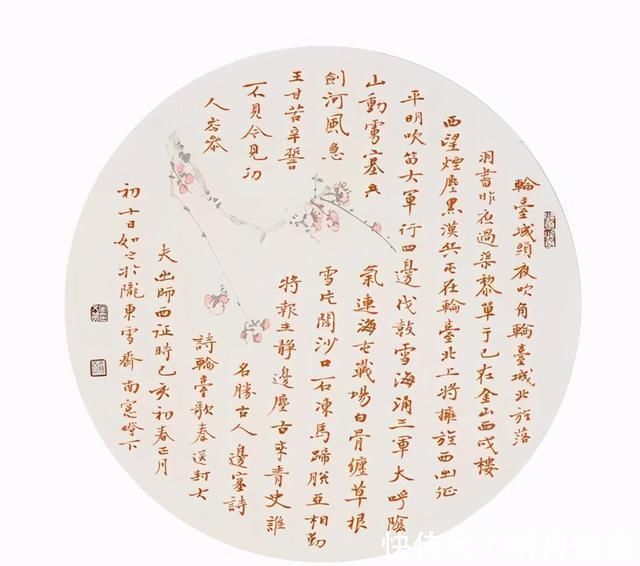 輪臺城頭夜吹角輪臺城北旄落
羽書昨夜過渠黎單于已在金山西戍樓
西望煙塵黑漢兵屯在輪臺北上將擁旄西出征
平明吹笛大軍行四邊伐鼓雪海涌三軍大呼陰
山動虜塞兵氣連海屯戰場白骨纏草根
劍河風急雪片闊沙口石凍馬蹄脫亞相勤
王甘苦辛誓將報主静邊塵古來青史誰
不見今見功名勝古人邊塞詩
人岑參詩輪臺歌奉送封大
夫出師西征時己亥初春正月
初十日如之於隴東雪齋南窗燈下
快传号 / 明月怡梅